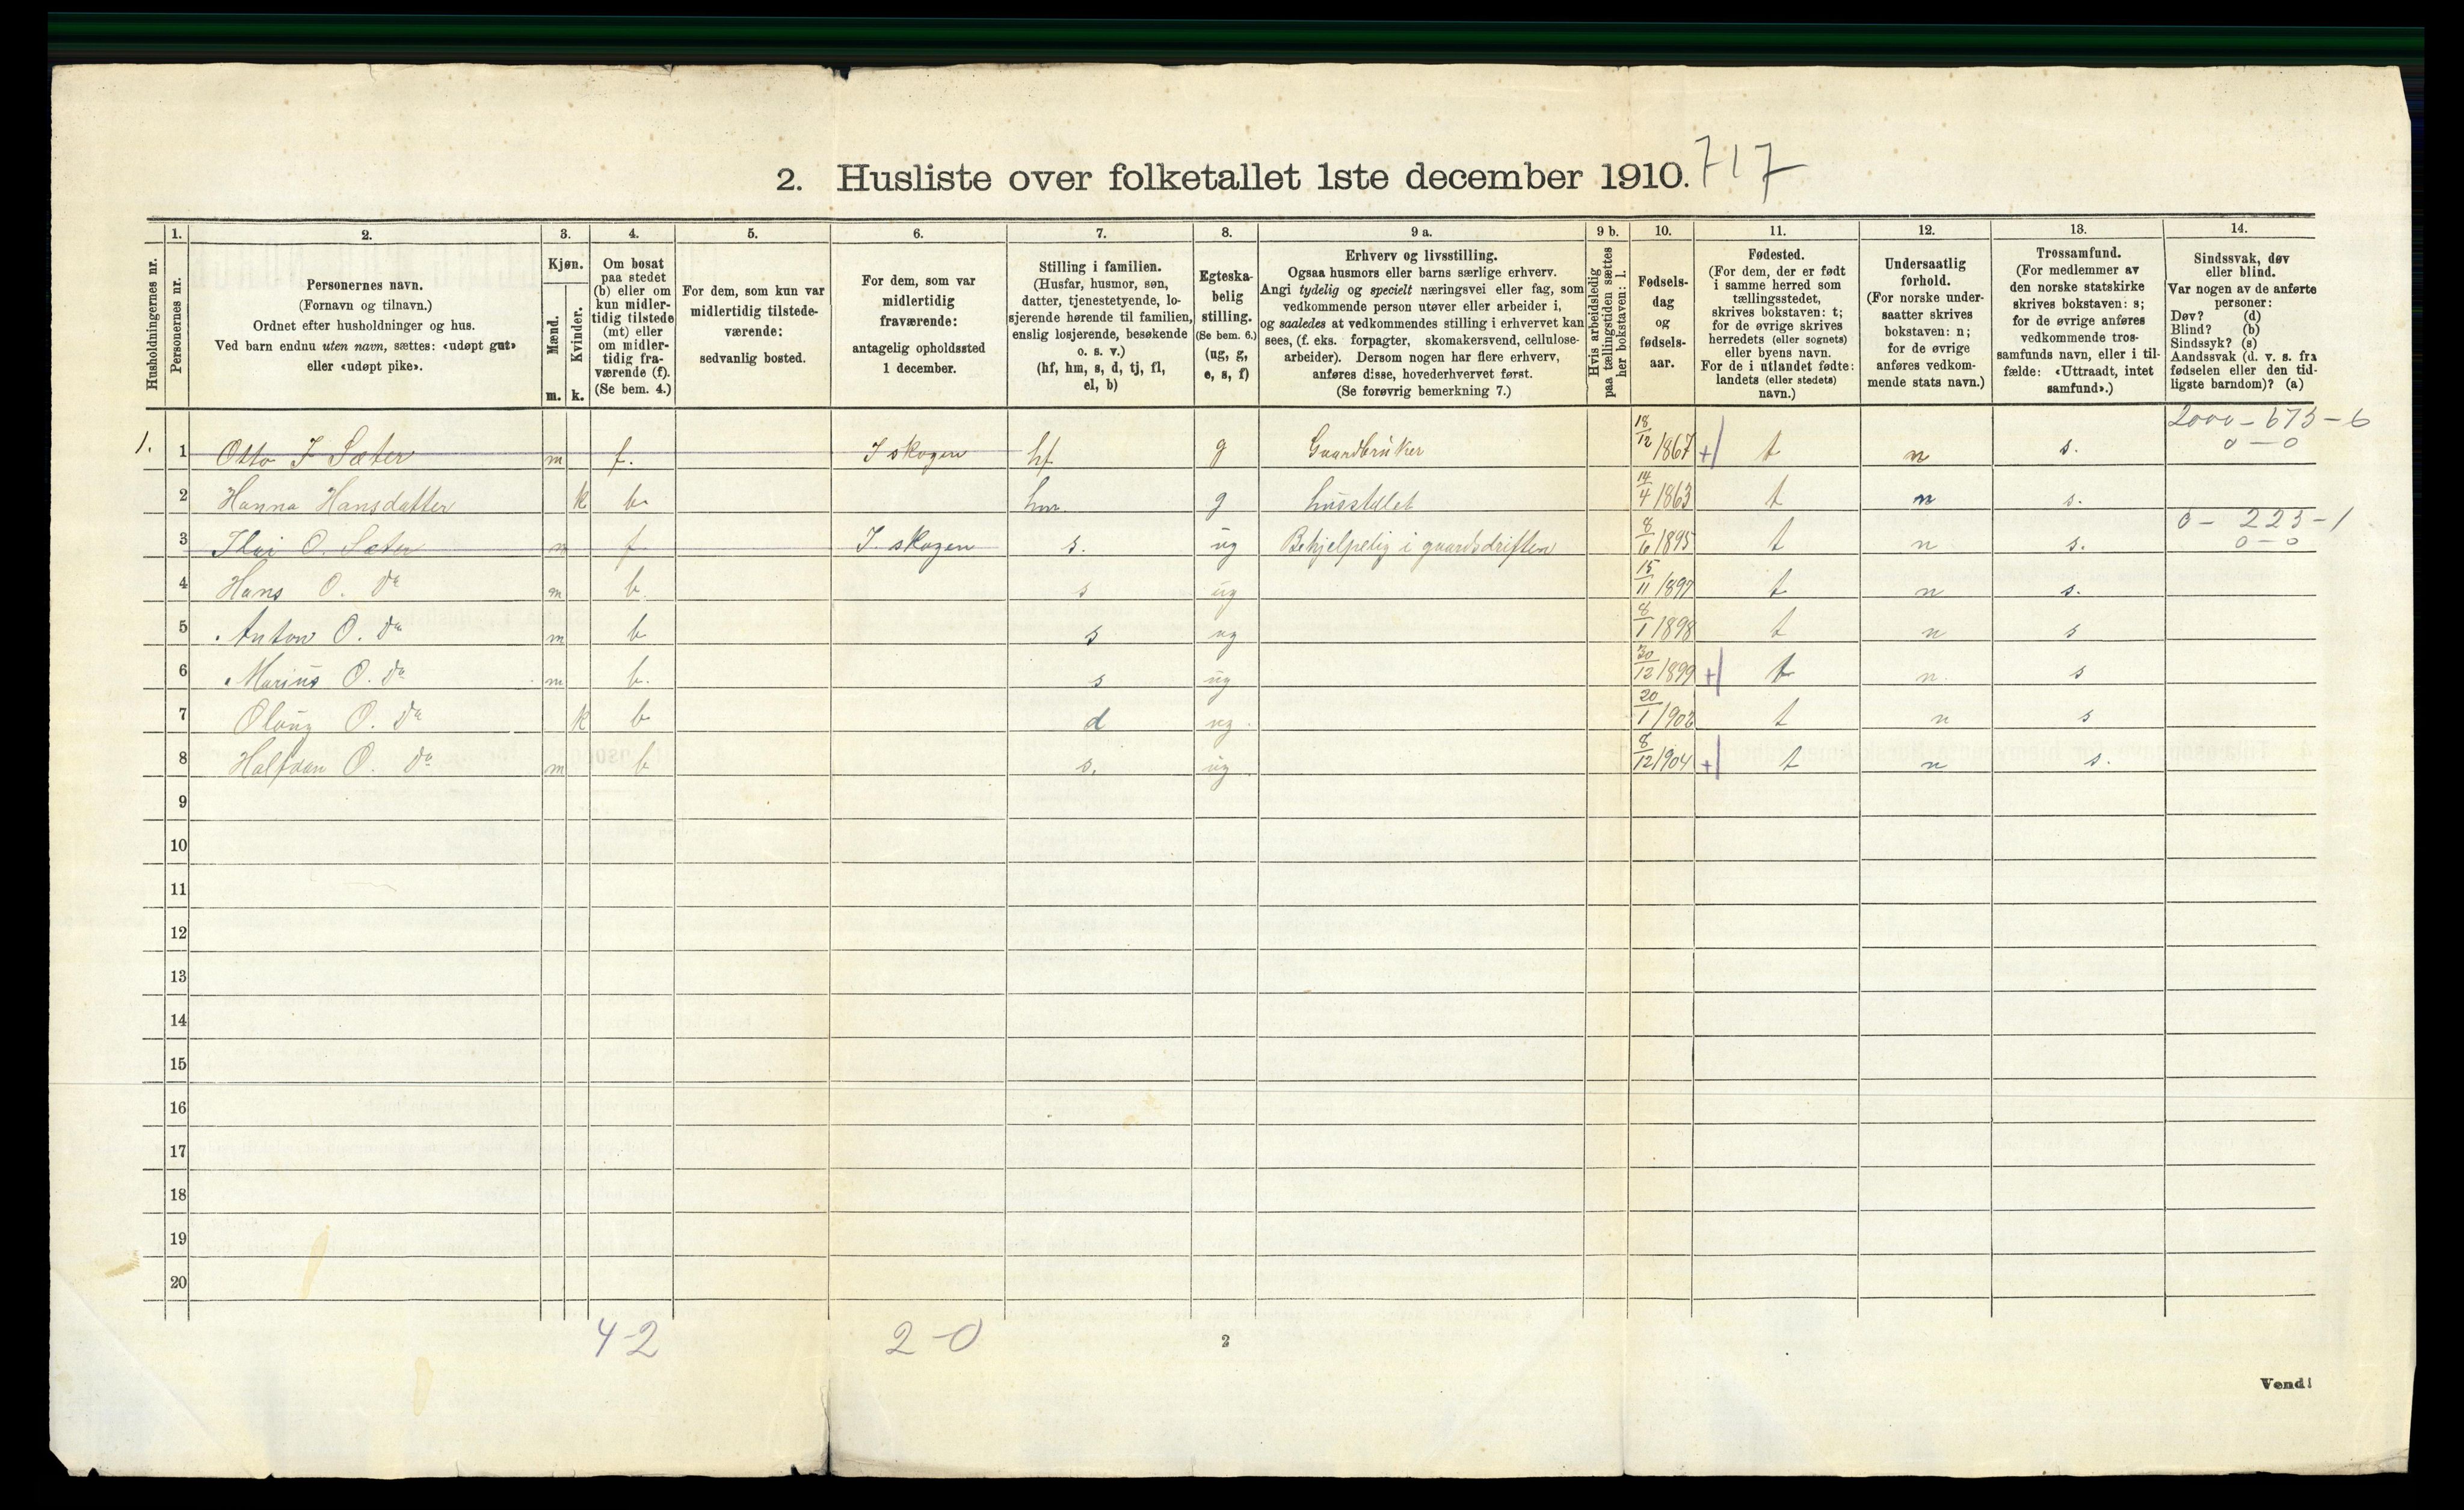 2. Husliste over folketallet 1ste december 1910. 717
1. 2. 3. 4. 5. 6. 7. 8. 9 a. 9 b. 10. 11. 12. 13. 14.
Husholdningernes nr.
Personernes nr.
Personernes navn.
(Fornavn og tilnavn.)
Ordnet efter husholdninger og hus.
Ved barn endnu uten navn, sættes: «udøpt gut»
eller «udøpt pike».
Kjøn.
Mænd.
Kvinder.
m. k.
Om bosat
paa stedet
(b) eller om
kun midler-
tidig tilstede
(mt) eller
om midler-
tidig fra-
værende (f).
(Se bem. 4.)
For dem, som kun var
midlertidig tilstede-
værende:
sedvanlig bosted.
For dem, som var
midlertidig
fraværende:
antagelig opholdssted
1 december.
Stilling i familien.
(Husfar, husmor, søn,
datter, tjenestetyende, lo-
sjerende hørende til familien,
enslig losjerende, besøkende
o. s. v.)
(hf, hm, s, d, tj, fl,
el, b)
Egteska-
belig
stilling.
(Se bem. 6.)
(ug, g,
e, s, f)
Erhverv og livsstilling.
Ogsaa husmors eller barns særlige erhverv.
Angi tydelig og specielt næringsvei eller fag, som
vedkommende person utøver eller arbeider i,
og saaledes at vedkommendes stilling i erhvervet kan
sees, (f. eks. forpagter, skomakersvend, cellulose-
arbeider). Dersom nogen har flere erhverv,
anføres disse, hovederhvervet først.
(Se forøvrig bemerkning 7.)
Hvis arbeidsledig
paa tællingstiden sættes
her bokstaven: l.
Fødsels-
dag
og
fødsels-
aar.
Fødested.
(For dem, der er født
i samme herred som
tællingsstedet,
skrives bokstaven: t;
for de øvrige skrives
herredets (eller sognets)
eller byens navn.
For de i utlandet fødte:
landets (eller stedets)
navn.)
Undersaatlig
forhold.
(For norske under-
saatter skrives
bokstaven: n;
for de øvrige
anføres vedkom-
mende stats navn.)
Trossamfund.
(For medlemmer av
den norske statskirke
skrives bokstaven: s;
for de øvrige anføres
vedkommende tros-
samfunds navn, eller i til-
fælde: «Uttraadt, intet
samfund».)
Sindssvak, døv
eller blind.
Var nogen av de anførte
personer:
Døv? (d)
Blind? (b)
Sindssyk? (s)
Aandssvak (d. v. s. fra
fødselen eller den tid-
ligste barndom)? (a)
2000-673-6
1. 1 Otto J Sæter m f. I skogen hf g Gaardbruker 18/12 1867 + t n s. 0-0
2 Hanna Hansdatter k b hm g husstellet 14/4 1863 t n s.
0-223-1
3 O. Sæter m f I skogen s. ug Behjelpelig i gaardsdriften 8/6 1895 t n s. 0-0
4 Hans O. do m b. s ug 15/11 1897 t n s.
5 Anton O. do m b s ug 8/1 1898 t n s
6 Marius O. do m b. s ug 30/12 1899 + t n. s
7 Olaug O. do k b d ug. 20/1 1902 t n s
8 Halfdan O. do m b s. ug. 8/12 1904 + t n s.
9
10
11
12
13
14
15
16
17
18
19
20
4-2 2-0 2
Vend!